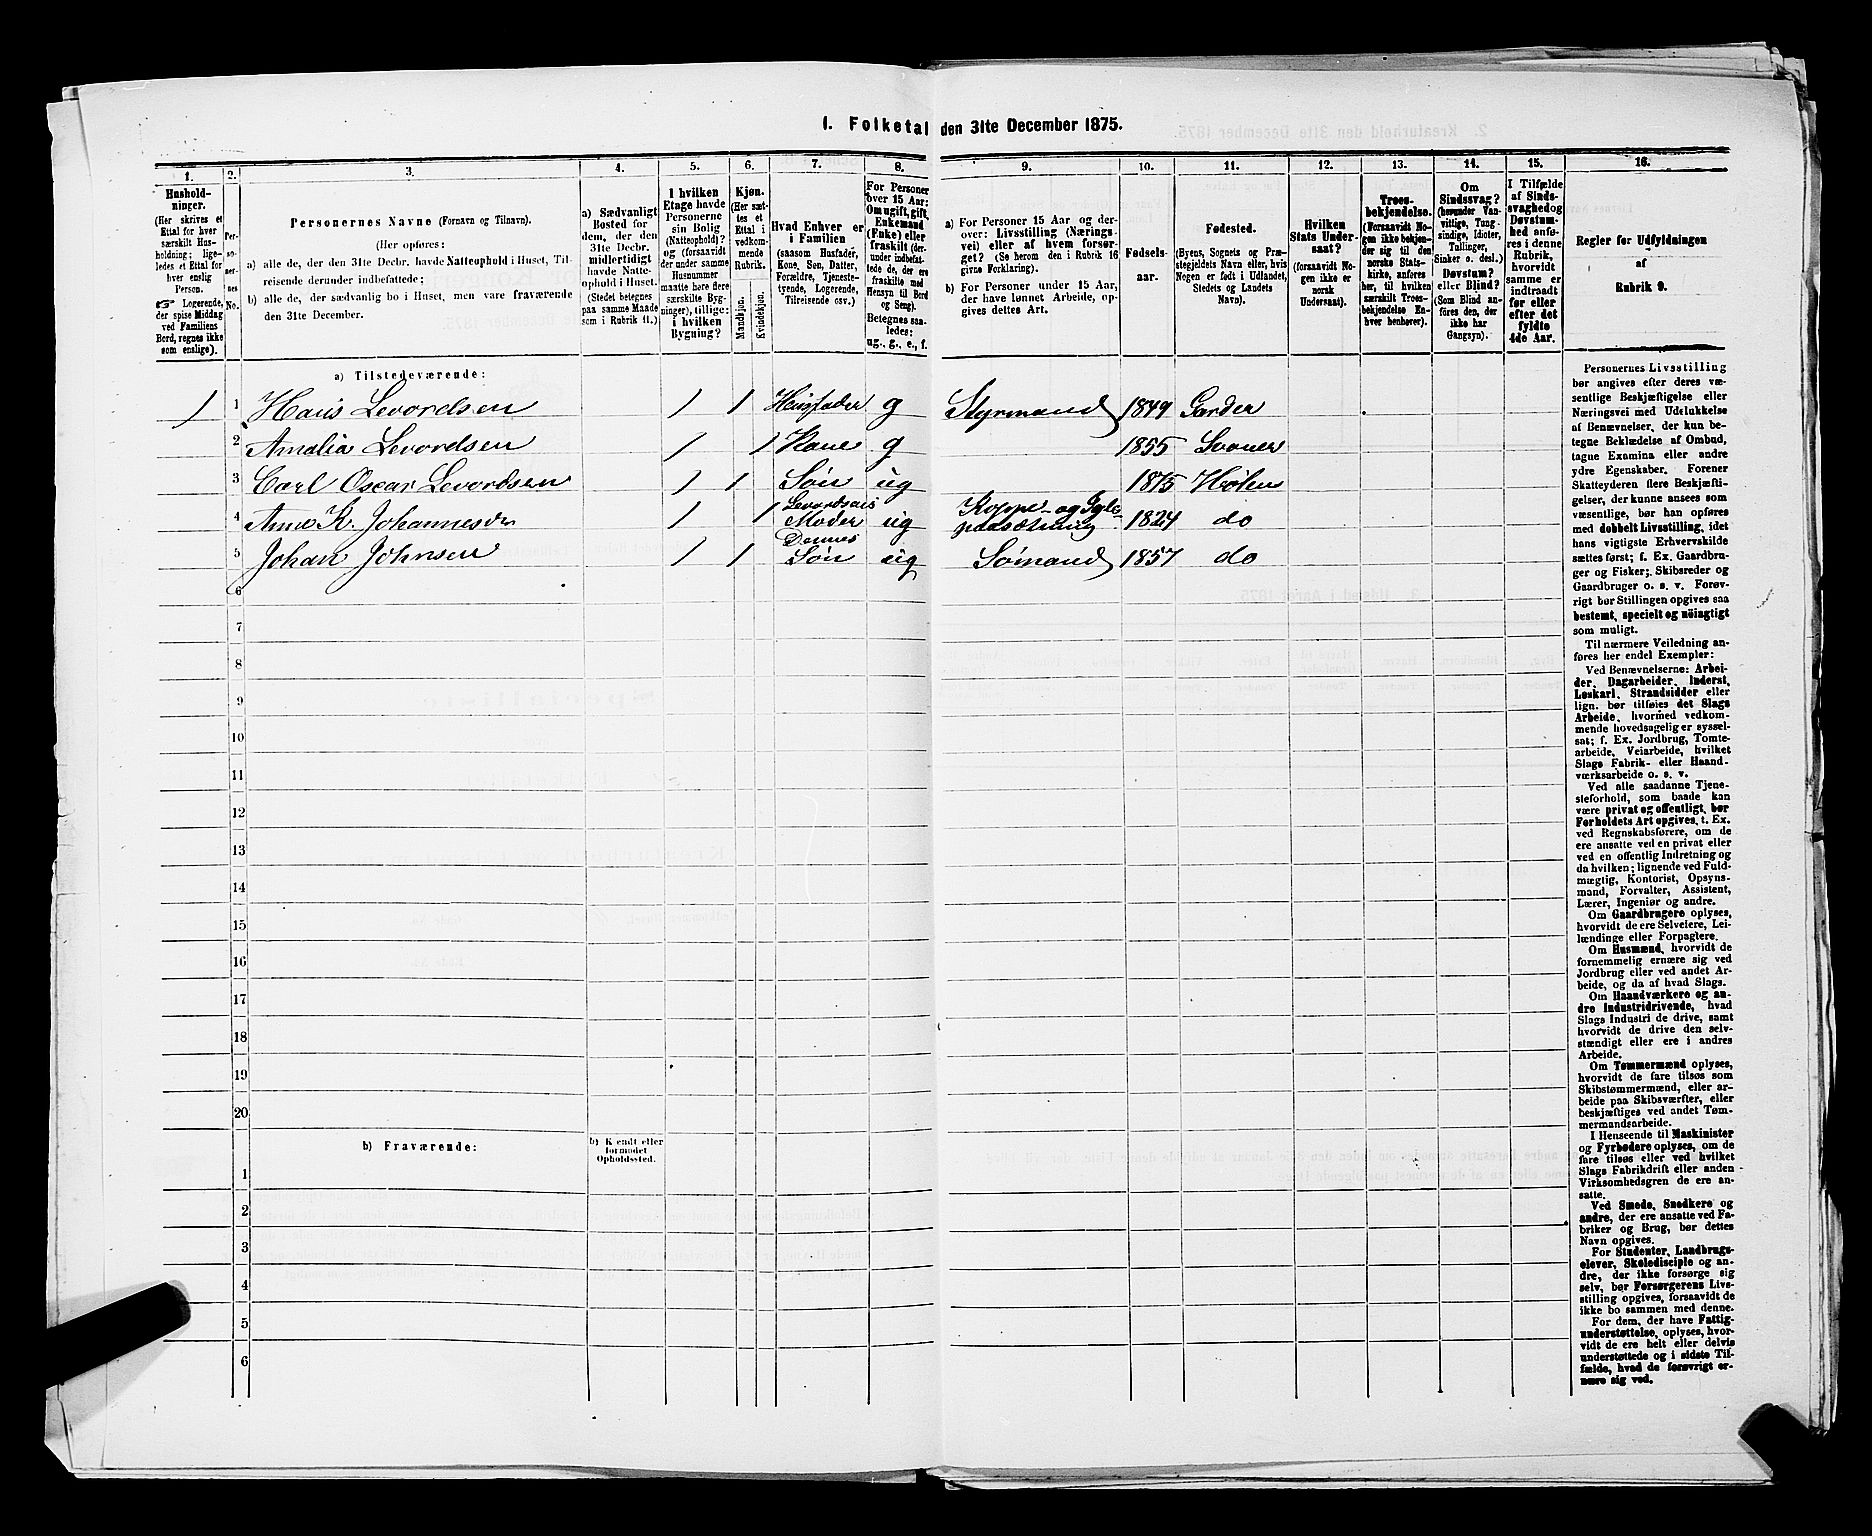 1. Folketal den 31te December 1875.
1. 2. 3. 4. 5. 6. 7. 8. 9. 10. 11. 12. 13. 14. 15. 16.
Hushold-
ninger.
(Her skrives et
Ettal for hver
særskilt Hus-
holdning; lige-
ledes et Ettal for
hver enslig
Person.
☞ Logerende,
der spise Middag
ved Familiens
Bord, regnes ikke
som enslige).
Per-
soner-
nes
No.
Personernes Navne (Fornavn og Tilnavn).
(Her opføres:
a) alle de, der den 31te Decbr. havde Natteophold i Huset, Til-
reisende derunder indbefattede;
b) alle de, der sædvanlig bo i Huset, men vare fraværende
den 31te December.
a) Sædvanligt
Bosted for
dem, der den
31te Decbr.
midlertidigt
havde Natte-
ophold i Huset.
(Stedet betegnes
paa samme Maade
som i Rubrik 11.)
I hvilken
Etage havde
Personerne
sin Bolig
(Natteophold)?
og (forsaavidt
der under samme
Husnummer
maatte høre flere
særskilte Byg-
ninger), tillige:
i hvilken
Bygning?
Kjøn.
(Her sæt-
tes et
Ettal i
vedkom-
mende
Rubrik.
Mandkjøn.
Kvindekjøn.
Hvad Enhver er
i Familien
(saasom Husfader,
Kone, Søn, Datter,
Forældre, Tjeneste-
tyende, Logerende,
Tilreisende osv.)
For Personer
over 15 Aar:
Om ugift, gift,
Enkemand
(Enke) eller
fraskilt (der-
under indbefat-
tede de, der ere
fraskilte med
Hensyn til Bord
og Seng).
Betegnes saa-
ledes:
ug., g., e., f.
a) For Personer 15 Aar og der-
over: Livsstilling (Nærings-
vei) eller af hvem forsør-
get? (Se herom den i Rubrik 16
givne Forklaring).
b) For Personer under 15 Aar,
der have lønnet Arbeide, op-
gives dettes Art.
Fødsels-
aar.
Fødested.
(Byens, Sognets og Præ-
stegjeldets Navn eller, hvis
Nogen er født i Udlandet,
Stedets og Landets
Navn).
Hvilken
Stats Under-
saat?
(forsaavidt No-
gen ikke er
norsk
Undersaat).
Troes-
bekjendelse.
(Forsaavidt No-
gen ikke bekjen-
der sig til den
norske Stats-
kirke, anføres
her, til hvilken
særskilt Troes-
bekjendelse En-
hver henhører).
Om
Sindssvag?
(herunder Van-
vittige, Tung-
sindige, Idioter,
Tullinger,
Sinker o. desl.)
Døvstum?
eller Blind?
(Som Blind an-
føres den, der
ikke har
Gangsyn).
I Tilfælde
af Sinds-
svaghed og
Døvstum-
hed anfø-
res i denne
Rubrik,
hvorvidt
samme er
indtraadt
før eller
efter det
fyldte
4de Aar.
Regler for Udfyldningen
af
Rubrik 9.
a) Tilstedeværende:
1 1 Hans Levordsen 1 1 Husfader g Styrmand 1849 Garder
2 Amalia Levordsen 1 1 Kone g 1855 Svaner
3 Carl Oscar Levordsen 1 1 Søn ug 1875 Høken
4 Anne K. Johannesdr 1 1 Levordsens Moder ug Koppe- og Igle- paasætning 1824 do
5 Johan Johnsen 1 1 Dennes Søn ug Sømand 1857 do
6
7
8
9
10
11
12
13
14
15
16
17
18
19
20
b) Fraværende:
b) Kendt eller
formodet
Opholdssted.
1
2
3
4
5
6
Personernes Livsstilling
bør angives efter deres væ-
sentlige Beskjæftigelse eller
Næringsvei med Udelukkelse
af Benævnelser, der kun be-
tegne Beklædelse af Ombud,
tagne Examina eller andre
ydre Egenskaber. Forener
Skatteyderen flere Beskjæfti-
gelser, der kunne ansees som
væsentlige, bør han opføres
med dobbelt Livsstilling, idet
hans vigtigste Erhvervskilde
sættes først; f. Ex. Gaardbru-
ger og Fisker; Skibsreder og
Gaardbruger o. s. v. Forøv-
rigt bør Stillingen opgives saa
bestemt, specielt og nøiagtigt
som muligt.
Til nærmere Veiledning an-
føres her endel Exempler:
Ved Benævnelserne: Arbei-
der, Dagarbeider, Inderst,
Løskarl, Strandsidder eller
lign. bør tilføies det Slags
Arbeide, hvormed vedkom-
mende hovedsagelig er syssel-
sat; f. Ex. Jordbrug, Tomte-
arbeide, Veiarbeide, hvilket
Slags Fabrik- eller Haand-
værksarbeide o. s. v.
Ved alle saadanne Tjene-
steforhold, som baade kan
være privat og offentligt, bør
Forholdets Art opgives, t. Ex.
ved Regnskabsførere, om de
ere ansatte ved en privat eller
ved en offentlig Indretning og
da hvilken; lignende ved Fuld-
mægtig, Kontorist, Opsyns-
mand, Forvalter, Assistent,
Lærer, Ingeniør og andre.
Om Gaardbrugere oplyses,
hvorvidt de ere Selveiere, Lei-
lændinge eller Forpagtere.
Om Husmænd, hvorvidt de
fornemmelig ernære sig ved
Jordbrug eller ved andet Ar-
beide, og da af hvad Slags.
Om Haandværkere og an-
dre Industridrivende, hvad
Slags Industri de drive, samt
hvorvidt de drive den selv-
stændigt eller ere i andres
Arbeide.
Om Tømmermænd oplyses,
hvorvidt de fare tilsøs som
Skibstømmermænd, eller ar-
beide paa Skibsværfter, eller
beskjæftiges ved andet Tøm-
mermandsarbeide.
I Henseende til Maskinister
og Fyrbødere oplyses, om de
fare tilsøs eller ved hvilket
Slags Fabrikdrift eller anden
Virksomhedsgren de ere an-
satte.
Ved Smede, Snedkere og
andre, der ere ansatte ved Fa-
briker og Brug, bør dettes
Navn opgives.
For Studenter, Landbrugs-
elever, Skoledisciple og an-
dre, der ikke forsørge sig
selv, bør Forsørgerens Livs-
stilling opgives, forsaavidt de
ikke bo sammen med denne.
For dem, der have Fattig-
understøttelse, oplyses, hvor-
vidt de ere helt eller delvis
understøttede og i sidste Til-
fælde, hvad de forøvrigt er-
nære sig ved.